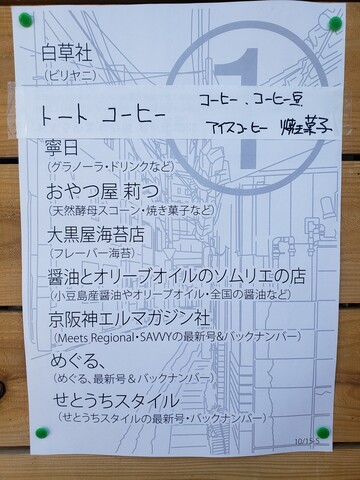 白草社
(ビリヤニ)
トート コーヒー
コーヒー、コーヒー豆
アイスコーヒー 焼き菓子
寧日
(グラノーラ・ドリンクなど)
おやつ屋 莉つ
(天然酵母スコーン・焼き菓子など)
大黒屋海苔店
(フレーバー海苔)
醤油とオリーブオイルのソムリエの店
(小豆島産醤油やオリーブオイル・全国の醤油など)
京阪神エルマガジン社
(Meets Regional・SAVVYの最新号&バックナンバー)
めぐる、
(めぐる、最新号&バックナンバー)
せとうちスタイル
(せとうちスタイルの最新号・バックナンバー)
1